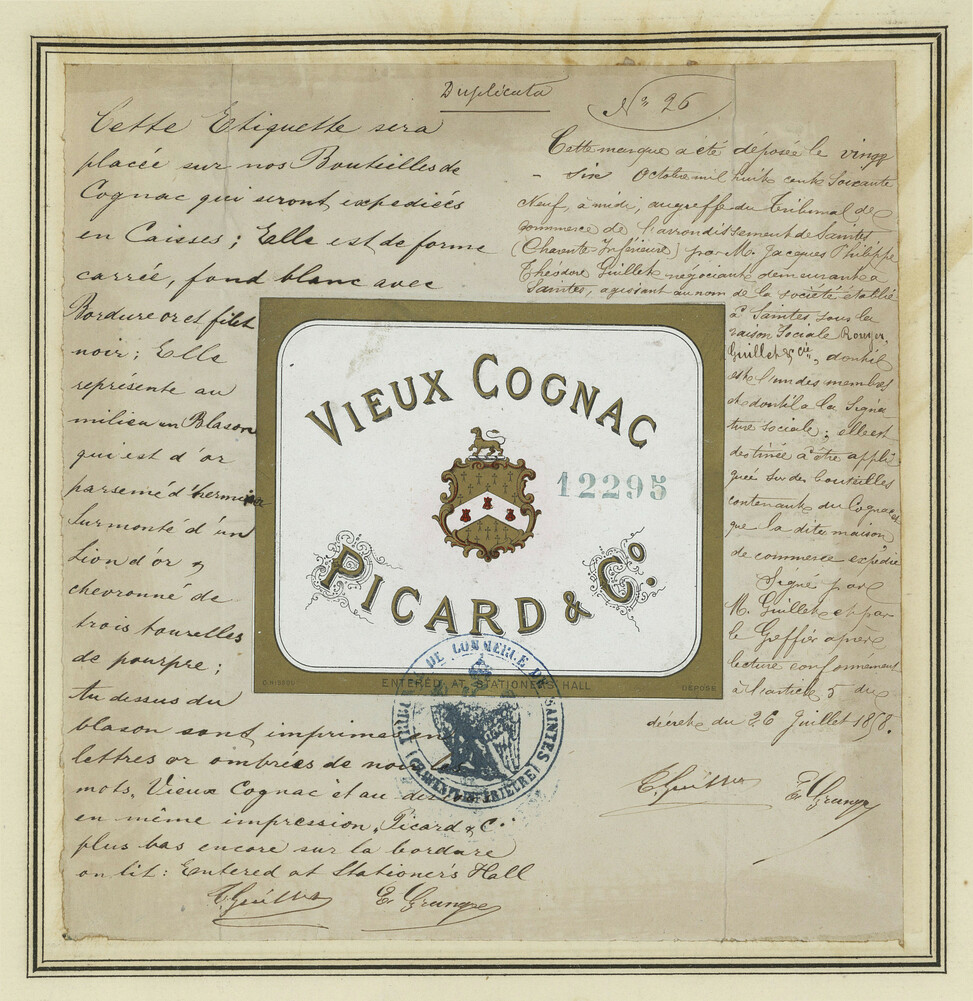 Duplicata
Nº 26
Cette Etiquette sera
placée sur nos Bouteilles de
Cognac qui seront expediées
en Caisses ; Elle est de forme
carrée, fond blanc avec
Bordure or et filet
noir ; Elle
représente au
milieu un Blason
qui est d'or
parsemé d'hermine
surmonté d'un
Lion d'or
chevronné de
trois tourelles
de pourpre ;
Au dessus du
blason sont imprimés en
lettres or ombrées de noir les
mots, Vieux Cognac et au
en même impression, Picard & Cº
plus bas encore sur la bordure
on lit : Entered at Stationers Hall
Cette marque a été déposée le vingt
- Six Octobre mil huit cent Soixante
Neuf, à midi, au greffe du Tribunal de
Commerce de l'arrondissement de Saintes
(Charente-Inférieure) par M. Jacques Philippe
Théodore Guillet négociant demeurant à
Saintes, agissant au nom de la société établie
à Saintes sous la
raison Sociale Rouyer,
Guillet & Cie, dont il
est l'un des membres
et dont il a la Signa
ture sociale ; elle est
destinée à être appli
quée sur des bouteilles
contenant du Cognac et
que la dite maison
de commerce expédie
Signé par
M. Guillet et par
le Greffier après
lecture conformément
à l'article 5 du
décret du 26 Juillet 1858.
VIEUX COGNAC
12295
PICARD & Cº.
ENTERED AT STATIONERS HALL
DEPOSÉ
TRIBUNAL DE COMMERCE DE SAINTES
(CHARENTE INFERIEURE)